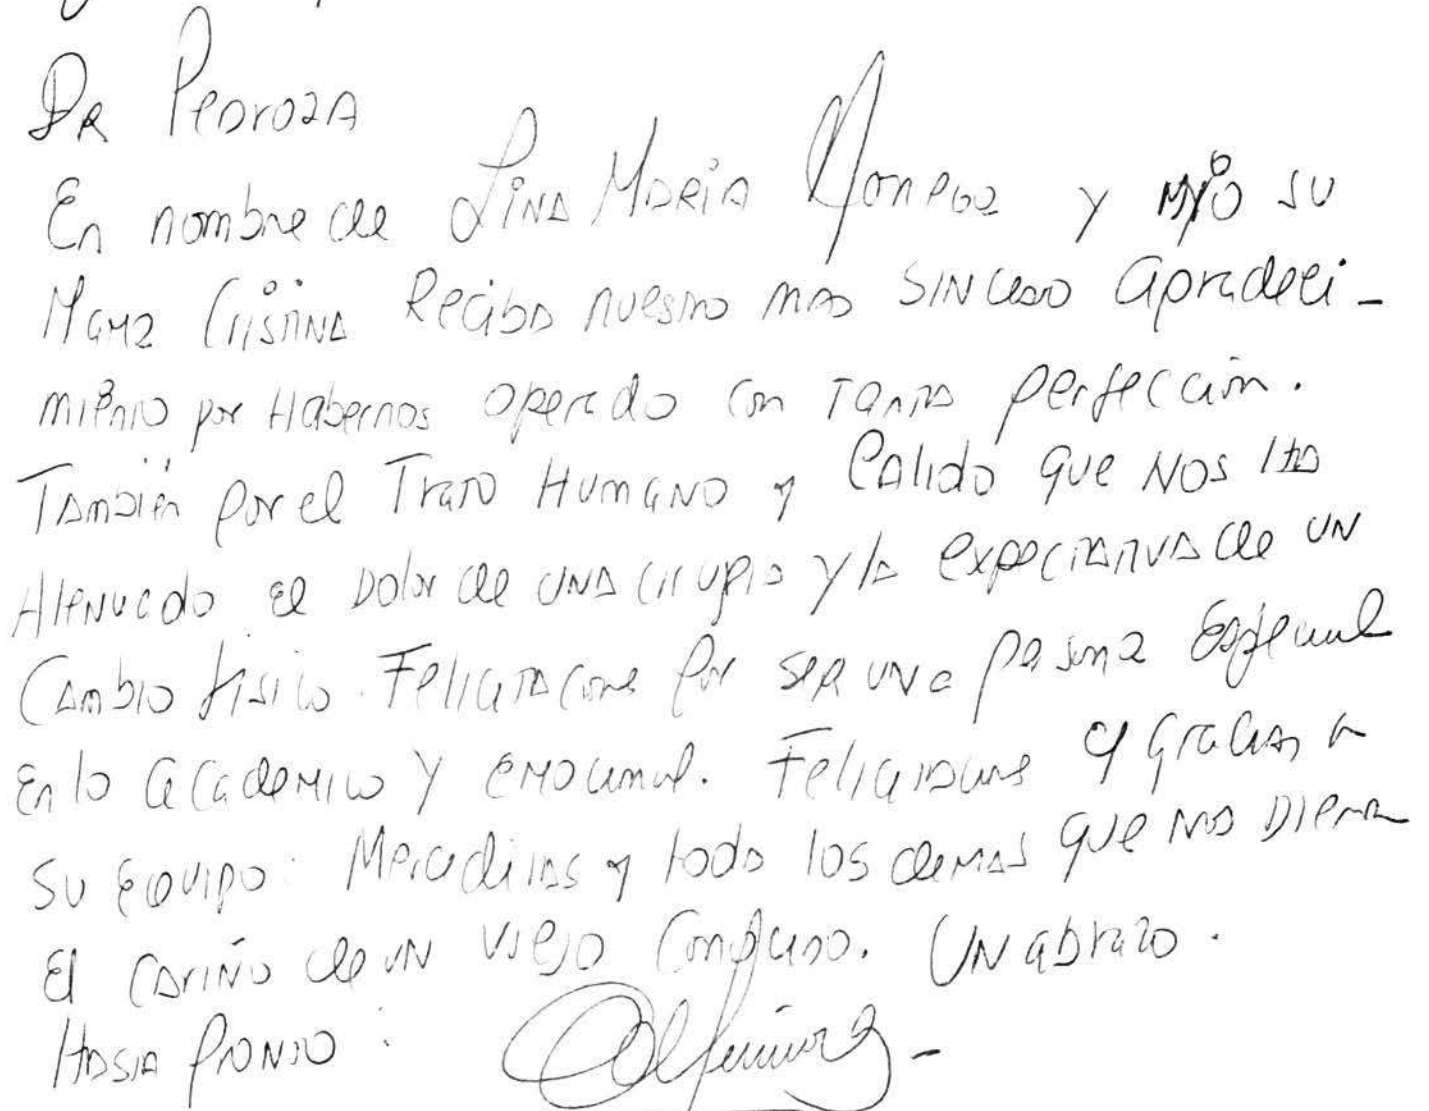 DR Pedroza
En nombre de Lina Maria y mio su
Mama Cristina Reciba nuestro mas sincero agradeci-
miento por Habernos operado con Tanta perfección.
También por el Trato Humano y Calido que Nos Ha
Atenuado el Dolor de una cirugia y la expectativa de un
Cambio fisico. Felicitaciones por ser una persona Especial
En lo academico y emocional. Felicitaciones y gracias a
su Equipo: Merceditas y todos los demas que nos Dieron
El Cariño de un viejo Conocido. Un abrazo.
Hasta Pronto: